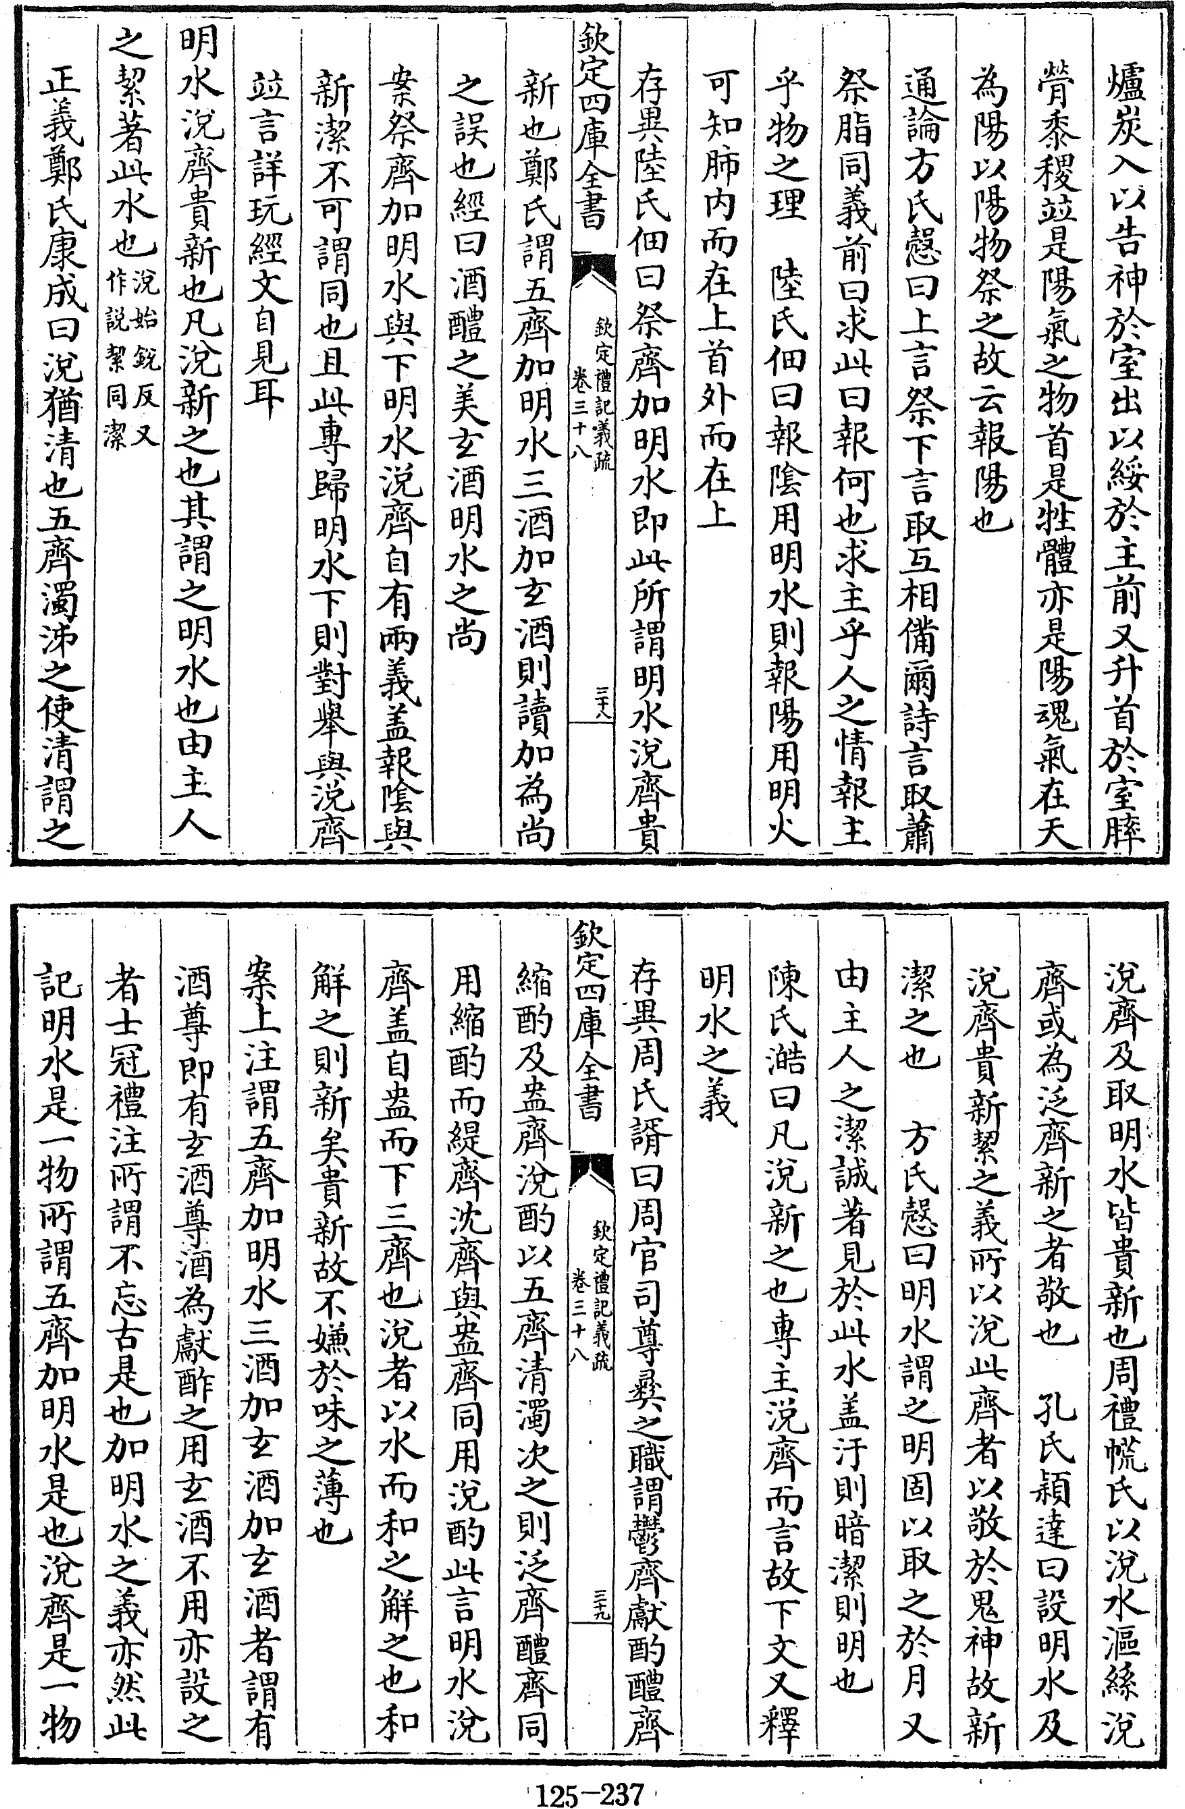 爐炭入以告神於室出以綏於主前又升首於室膟
膋黍稷竝是陽氣之物首是牲體亦是陽魂氣在天
為陽以陽物祭之故云報陽也
通論方氏慤曰上言祭下言取互相備爾詩言取蕭
祭脂同義前曰求此曰報何也求主乎人之情報主
乎物之理　陸氏佃曰報陰用明水則報陽用明火
可知肺内而在上首外而在上
存異陸氏佃曰祭齊加明水即此所謂明水涚齊貴
欽定四庫全書
欽定禮記義疏
卷三十八
三十八
新也鄭氏謂五齊加明水三酒加玄酒則讀加為尚
之誤也經曰酒醴之美玄酒明水之尚
案祭齊加明水與下明水涚齊自有兩義盖報陰與
新潔不可謂同也且此專歸明水下則對舉與涚齊
竝言詳玩經文自見耳
明水涚齊貴新也凡涚新之也其謂之明水也由主人
之絜著此水也涚始銳反又
作説絜同潔
正義鄭氏康成曰涚猶清也五齊濁泲之使清謂之
涚齊及取明水皆貴新也周禮㡛氏以涚水漚絲涚
齊或為泛齊新之者敬也　孔氏穎達曰設明水及
涚齊貴新絜之義所以涚此齊者以敬於鬼神故新
潔之也　方氏慤曰明水謂之明固以取之於月又
由主人之潔誠著見於此水盖汙則暗潔則明也
陳氏澔曰凡涚新之也專主涚齊而言故下文又釋
明水之義
存異周氏諝曰周官司尊彞之職謂鬱齊獻酌醴齊
欽定四庫全書
欽定禮記義疏
卷三十八
三十九
縮酌及盎齊涚酌以五齊清濁次之則泛齊醴齊同
用縮酌而緹齊沈齊與盎齊同用涚酌此言明水涚
齊盖自盎而下三齊也涚者以水而和之解之也和
解之則新矣貴新故不嫌於味之薄也
案上注謂五齊加明水三酒加玄酒加玄酒者謂有
酒尊即有玄酒尊酒為獻酢之用玄酒不用亦設之
者士冠禮注所謂不忘古是也加明水之義亦然此
記明水是一物所謂五齊加明水是也涚齊是一物
125-237